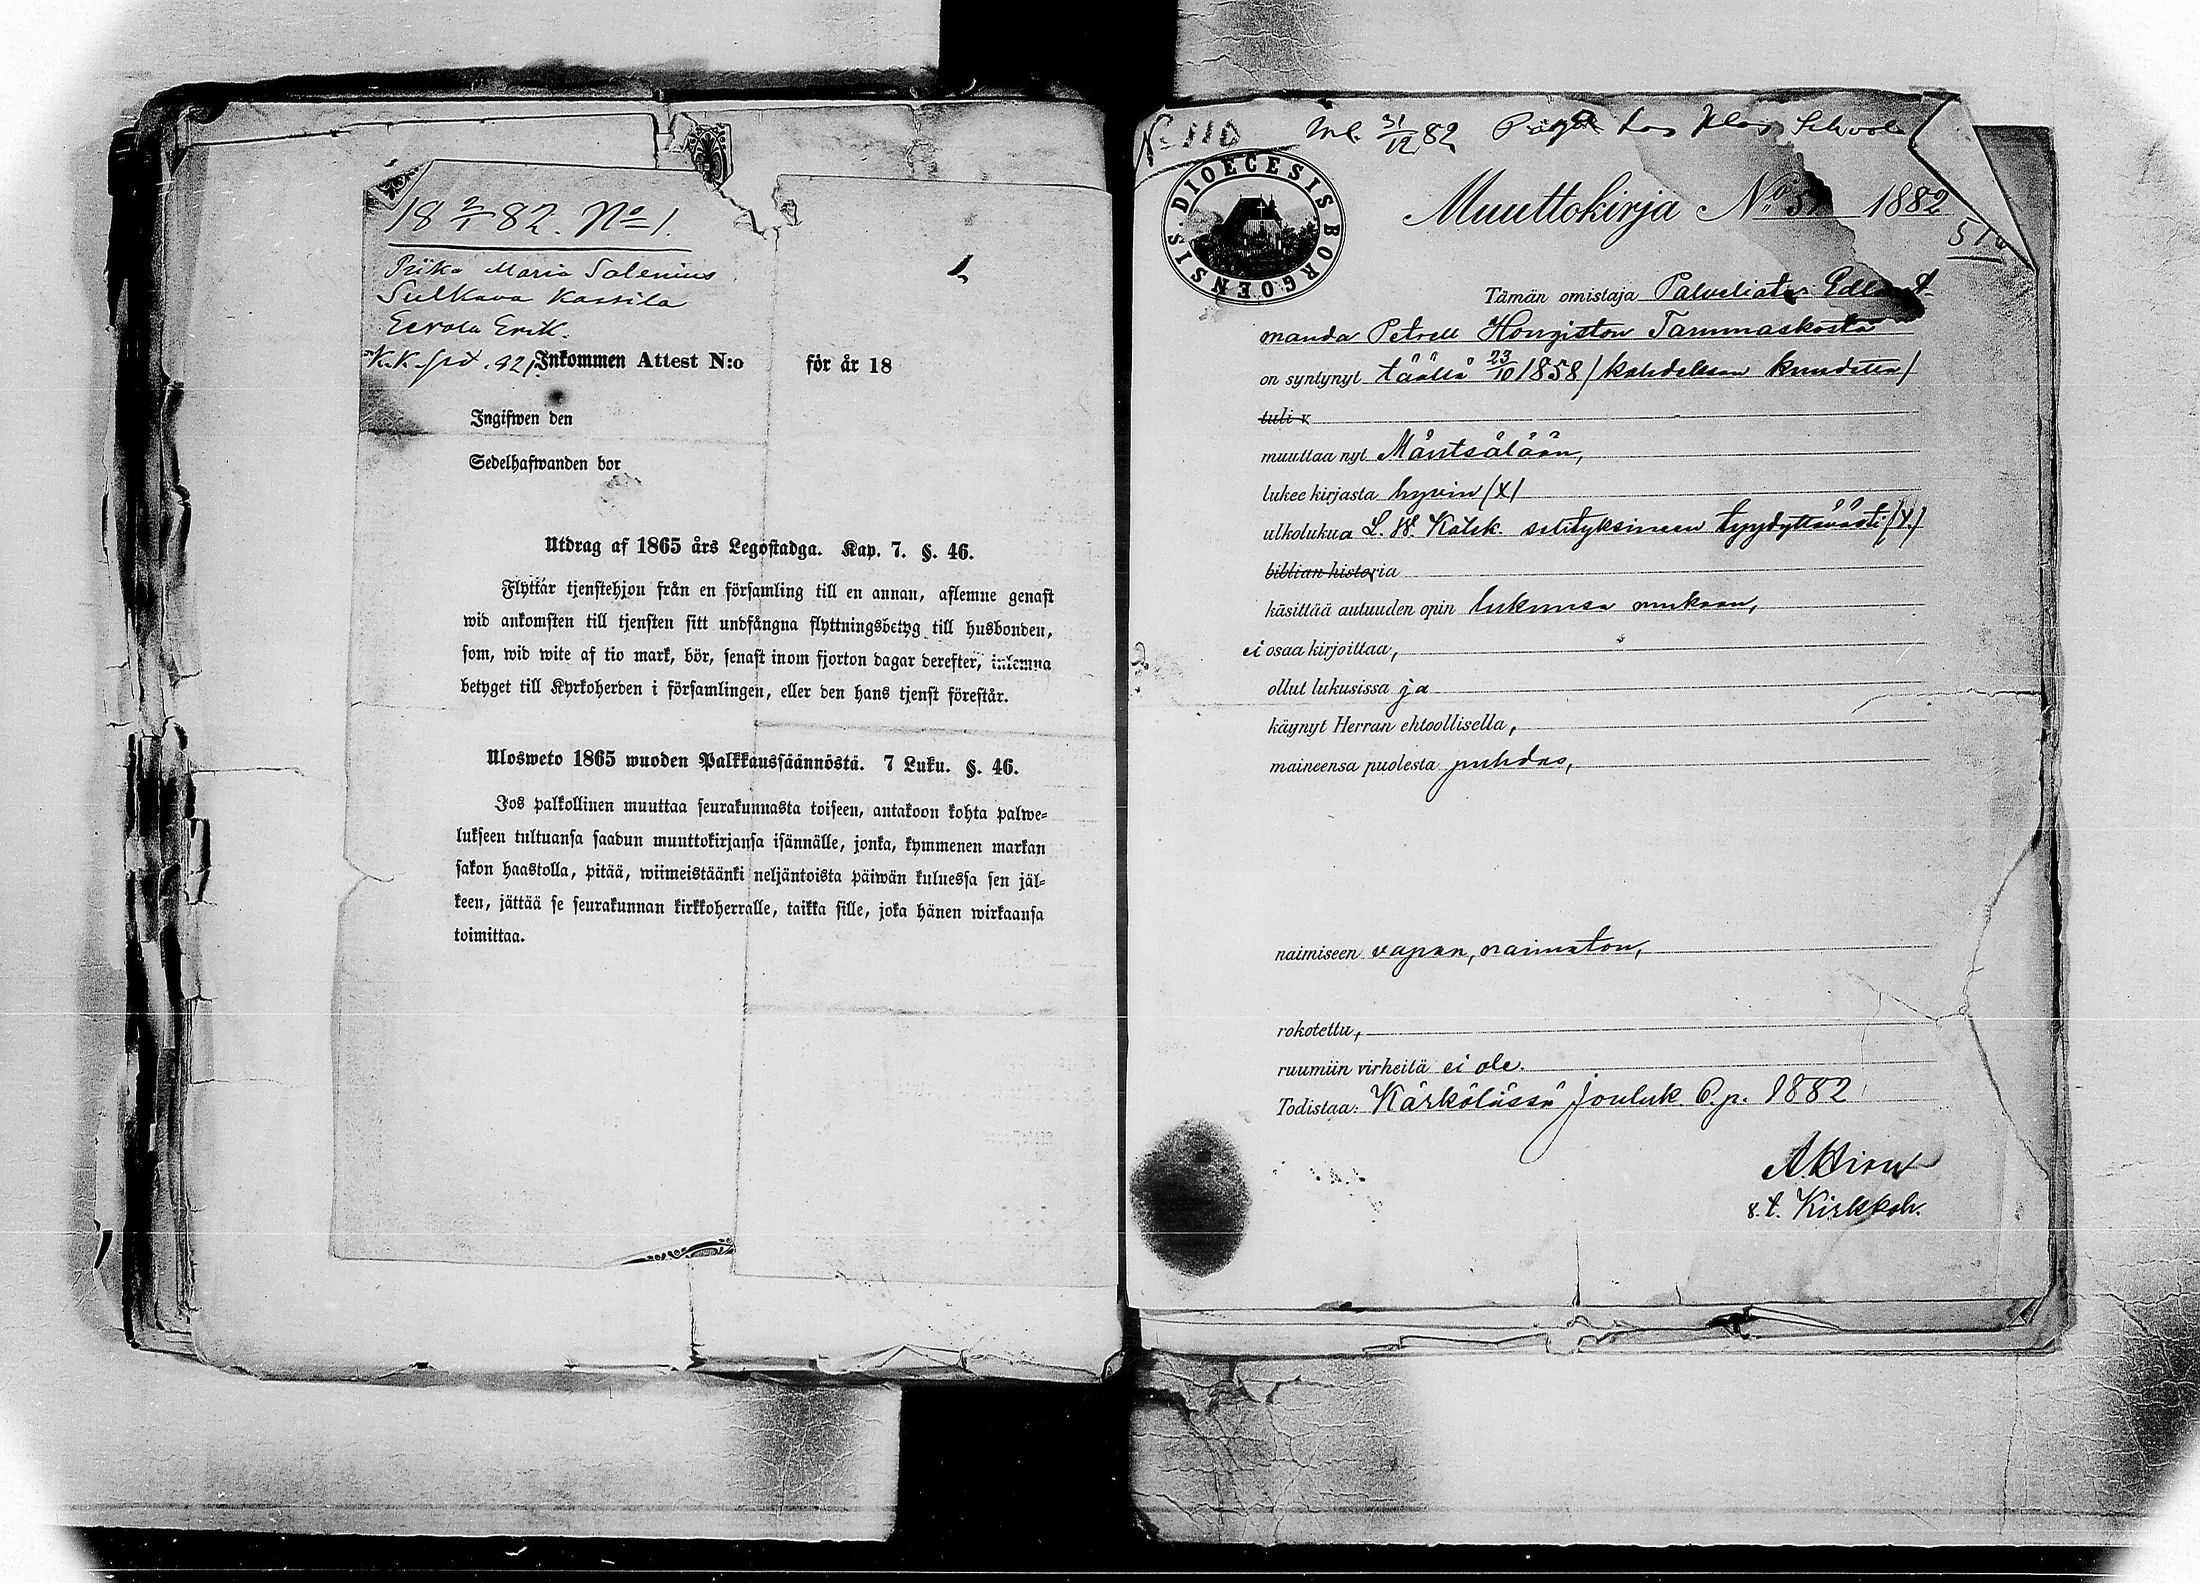 18 2/1 82. No 1.
Piika Maria Salenius
Sulkava Kassila
Eerola Erik.
Inkommen Attest N:o för år 18
Ingifwen den
Sedelhafwanden bor
Utdrag af 1865 års Legostadga. Kap. 7. §. 46.
Flyttar tjenstehjon från en församling till en annan, aflemne genast
wid ankomsten till tjensten sitt undfångna flyttningsbetyg till husbonden,
som, wid wite af tio mark, bör, senast inom fjorton dagar derefter, inlemna
betyget till Kyrkoherden i församlingen, eller den hans tjenst förestår.
Ulosweto 1865 wuoden Palkkaussäännöstä. 7 Luku. §. 46.
Jos palkollinen muuttaa seurakunnasta toiseen, antakoon kohta palwe-
lukseen tultuansa saadun muuttokirjansa isännälle, jonka, kymmenen markan
sakon haastolla, pitää, wiimeistäänki neljäntoista päiwän kuluessa sen jäl-
keen, jättää se seurakunnan kirkkoherralle, taikka sille, joka hänen wirkaansa
toimittaa.
No 110
31/12 82
DIOECESIS BORGOENSIS
Muuttokirja No 1882
Tämän omistaja Palveliatar
manda Petrell Hongiston Tammaskosta
on syntynyt täällä 23/10 1858 / kahdeksan kuudetta /
tuli v
muuttaa nyt Mäntsälään,
lukee kirjasta hyvin (X)
ulkolukua L. W. Katek. selityksineen tyydyttävästi (X)
biblian historia
käsittää autuuden opin lukunsa mukaan,
ei osaa kirjoittaa,
ollut lukusissa ja
käynyt Herran ehtoollisella,
maineensa puolesta puhdas,
naimiseen vapaa, naimaton,
rokotettu,
ruumiin virheitä ei ole.
Todistaa: Kärkölässä Jouluk. 6.p. 1882
Kirkkoh.